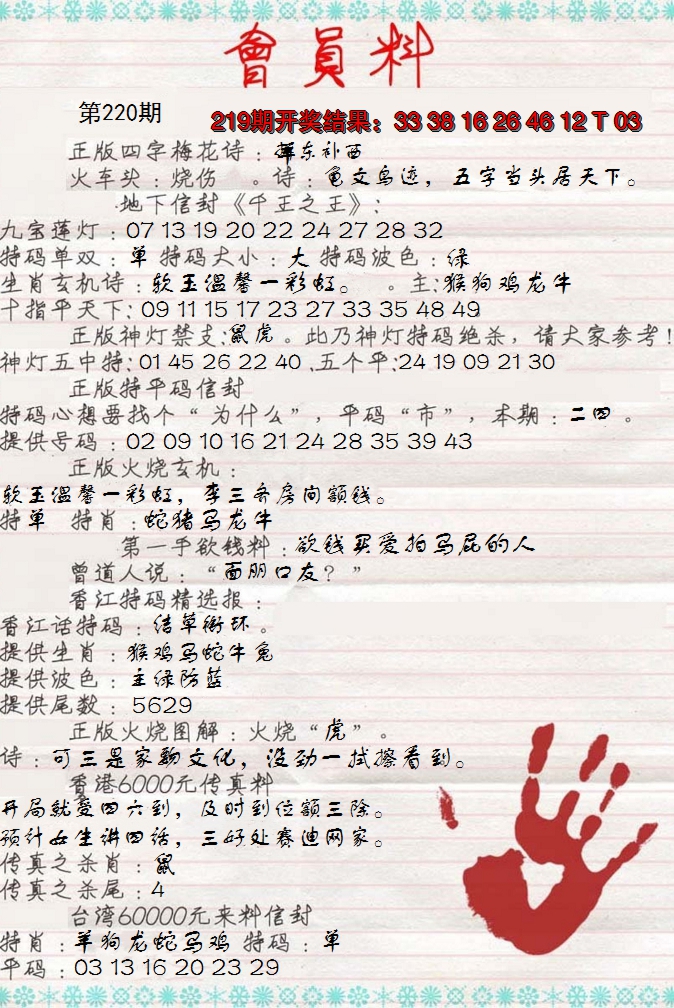 會員料
第220期
219期开奖结果：33 38 16 26 46 12 T 03
正版四字梅花诗：东补西
火车头：烧伤 。诗：龟文鸟迹，五字当头居天下。
地下信封《千王之王》：
九宝莲灯：07 13 19 20 22 24 27 28 32
特码单双：单 特码大小：大 特码波色：绿
生肖玄机诗：软玉温馨一彩虹。 。主:猴狗鸡龙牛
十指平天下:09 11 15 17 23 27 33 35 48 49
正版神灯禁支:鼠虎。此乃神灯特码绝杀，请大家参考!
神灯五中特:01 45 26 22 40 .五个平:24 19 09 21 30
正版特平码信封
特码心想要找个“为什么”，平码“市”，本期：二四。
提供号码：02 09 10 16 21 24 28 35 39 43
正版火烧玄机：
软玉温馨一彩虹，李三务房问额钱。
特单 特肖：蛇猪马龙牛
第一手欲钱料：欲钱买爱拍马屁的人
曾道人说：“面朋口友？”
香江特码精选报：
香江话特码：结草衔环。
提供生肖：猴鸡马蛇牛兔
提供波色：主绿防蓝
提供尾数：5629
正版火烧图解：火烧“虎”。
诗：可三是家驹文化，没劲一拭擦看到。
香港6000元传真料
开局就爱四六到，及时到位额三除。
预计女生讲四话，三好处赛迪网家。
传真之杀肖：鼠
传真之杀尾：4
台湾60000元来料信封
特肖：羊狗龙蛇马鸡 特码：单
平码：03 13 16 20 23 29